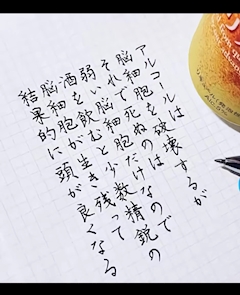 アルコールは
脳細胞を破壊するが
それで死ぬのは
弱い脳細胞なので
酒を飲むと少数精鋭の
脳細胞が生き残って
結果的に頭が良くなる